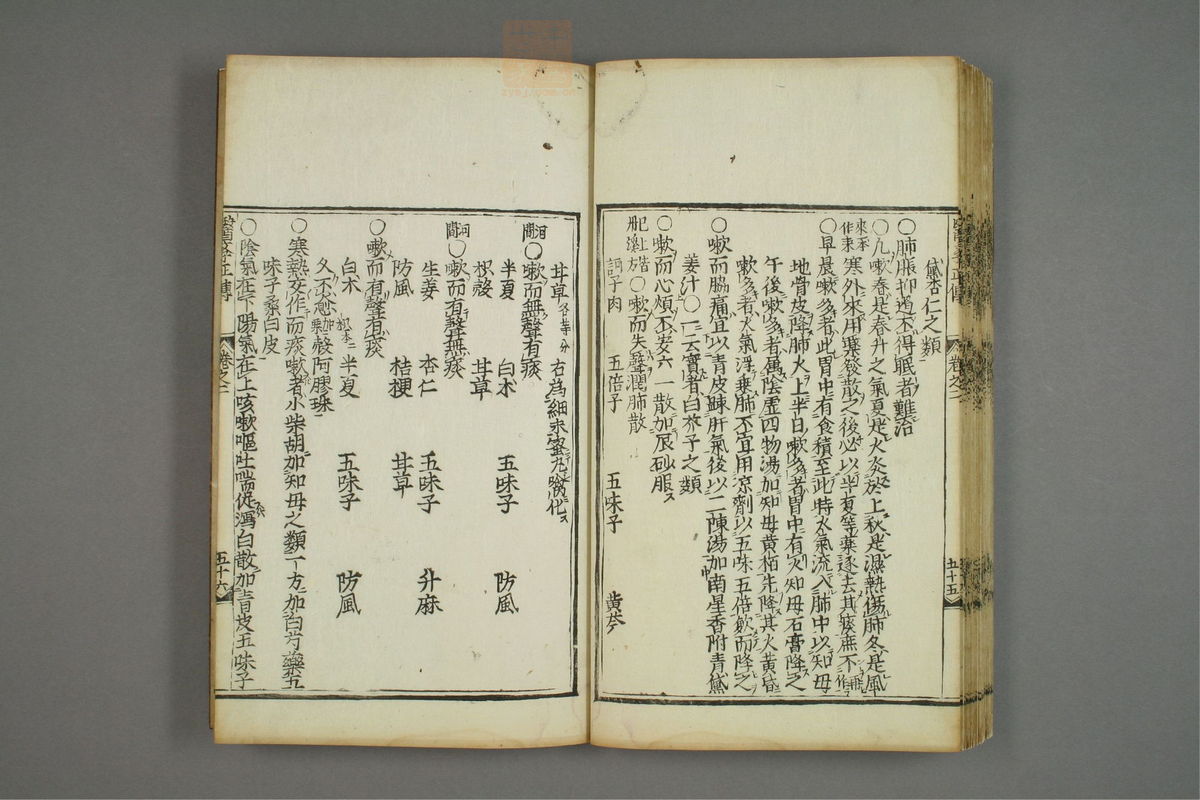 黛杏仁之類
○肺脹抑遏不得眠者難治
○凡嗽春是春升之氣夏是火炎於上秋是濕熱傷肺冬是風
寒外來用藥發散之後必以半夏等藥逐去其痰庶不再來
○早晨嗽多者此胃中有食積至此時火氣流入肺中以知母
地骨皮降肺火上半日嗽多者胃中有火知母石膏降之
午後嗽多者属陰虛四物湯加知母黄栢先降其火黄昏
嗽多者火氣浮乗肺不宜用凉劑以五味五倍歛而降之
○嗽而脇痛宜以青皮踈肝氣後以二陳湯加南星香附青黛
姜汁○一云實者白芥子之類
○嗽而心煩不安六一散加辰砂服
○嗽而失聲潤肺散
訶子肉 五倍子 五味子 黄芩
五十五
甘草各等分 右為細末蜜丸噙化
河間○嗽而無聲有痰
半夏 白朮 五味子 防風
枳殻 甘草
河間○嗽而有聲無痰
生姜 杏仁 五味子 升麻
防風 桔梗 甘草
○嗽而有聲有痰
白朮 半夏 五味子 防風
久不愈加枳殻阿膠珠
○寒熱交作而痰嗽者小柴胡加知母之類一方加白芍藥五
味子桑白皮
○陰氣在下陽氣在上咳嗽嘔吐喘促瀉白散加青皮五味子
醫學正傳 卷之二 五十六